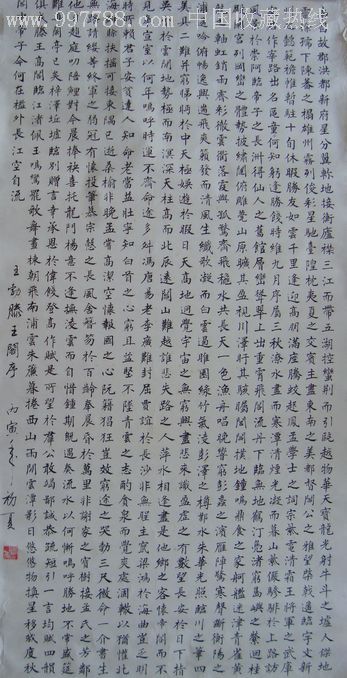 www.997788.com 中国收藏热线
故郡洪都新府星分翼軫地接衡廬襟三江而帶五湖控蠻荊而引甌越物華天寶龍光射牛斗之墟人傑地
下陳蕃之榻雄州霧列俊彩星馳臺隍枕夷夏之交賓主盡東南之美都督閻公之雅望棨戟遙臨宇文新
懿範襜帷暫駐十旬休暇勝友如雲千里逢迎高朋滿座騰蛟起鳳孟學士之詞宗紫電清霜王將軍之武庫
作宰路出名區童子何知躬逢勝餞時維九月序屬三秋潦水盡而寒潭清煙光凝而暮山紫儼驂騑於上路訪
風景於崇阿臨帝子之長洲得仙人之舊館層巒聳翠上出重霄飛閣流丹下臨無地鶴汀鳧渚窮島嶼之縈迴桂
宮列岡巒之體勢披繡闥俯雕甍山原曠其盈視川澤紆其駭矚閭閻撲地鐘鳴鼎食之家舸艦迷津青雀黃
軸虹銷雨霽彩徹雲衢落霞與孤鶩齊飛秋水共長天一色漁舟唱晚響窮彭蠡之濱雁陣驚寒聲斷衡陽之
浦吟俯暢逸興遄飛爽籟發而清風生纖歌凝而白雲遏睢園綠竹氣凌彭澤之樽鄴水朱華光照臨川之筆四
美二難并窮睇眄於中天極娛遊於暇日天高地迥覺宇宙之無窮興盡悲來識盈虛之有數望長安於日下指
於雲間地勢極而南溟深天柱高而北辰遠關山難越誰悲失路之人萍水相逢盡是他鄉之客懷帝閽而不
見宣室以何年嗚呼時運不齊命途多舛馮唐易老李廣難封屈賈誼於長沙非無聖主竄梁鴻於海曲豈乏明
時賴君子安貧達人知命老當益壯寧知白首之心窮且益堅不墜青雲之志酌貪泉而覺爽處涸轍以猶懽北
海雖賒扶搖可接東隅已逝桑榆非晚孟嘗高潔空懷報國之心阮籍猖狂豈效窮途之哭勃三尺微命一介書生
無請纓等終軍之弱冠有懷投筆慕宗愨之長風舍簪笏於百齡奉晨昏於萬里非謝家之寶樹接孟氏之芳鄰
他趨庭叨陪鯉對今晨捧袂喜托龍門楊意不逢撫凌雲而自惜鍾期既遇奏流水以何慚嗚呼勝地不常盛筵
難亭已矣梓澤丘墟臨別贈言幸承恩於偉餞登高作賦是所望於群公敢竭鄙誠恭疏短引一言均賦四韻
俱滕王高閣臨江渚佩玉鳴鸞罷歌舞畫棟朝飛南浦雲朱簾暮捲西山雨閒雲潭影日悠悠物換星移幾度秋
帝子今何在檻外長江空自流
王勃滕王閣序 丙寅年 楊夏